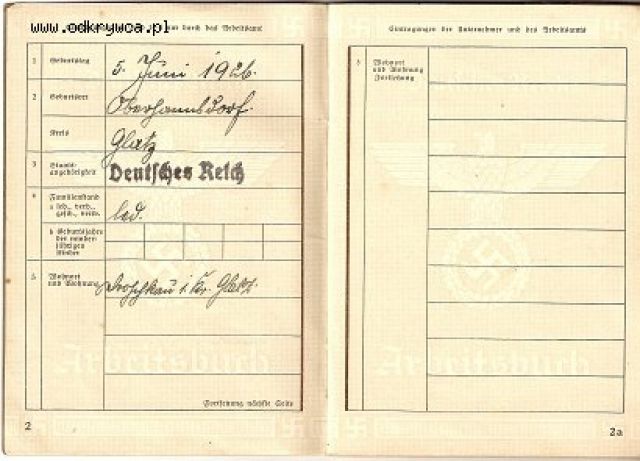 www.odkrywca.pl
durch das Arbeitsamt
1 Geburtstag 5. Juni 1926.
2 Geburtsort Oberhannsdorf.
Kreis Glatz
3 Staats-
angehörigkeit Deutsches Reich
4 Familienstand
led., verh.,
gesch., verw. led.
b Geburtsjahre
der minder-
jährigen
Kinder
5 Wohnort
und Wohnung Droschkau i. Kr. Glatz.
Arbeitsbuch
Fortsetzung nächste Seite
2
Eintragungen der Unternehmer und des Arbeitsamts
5 Wohnort
und Wohnung
Fortsetzung
Arbeitsbuch
2a